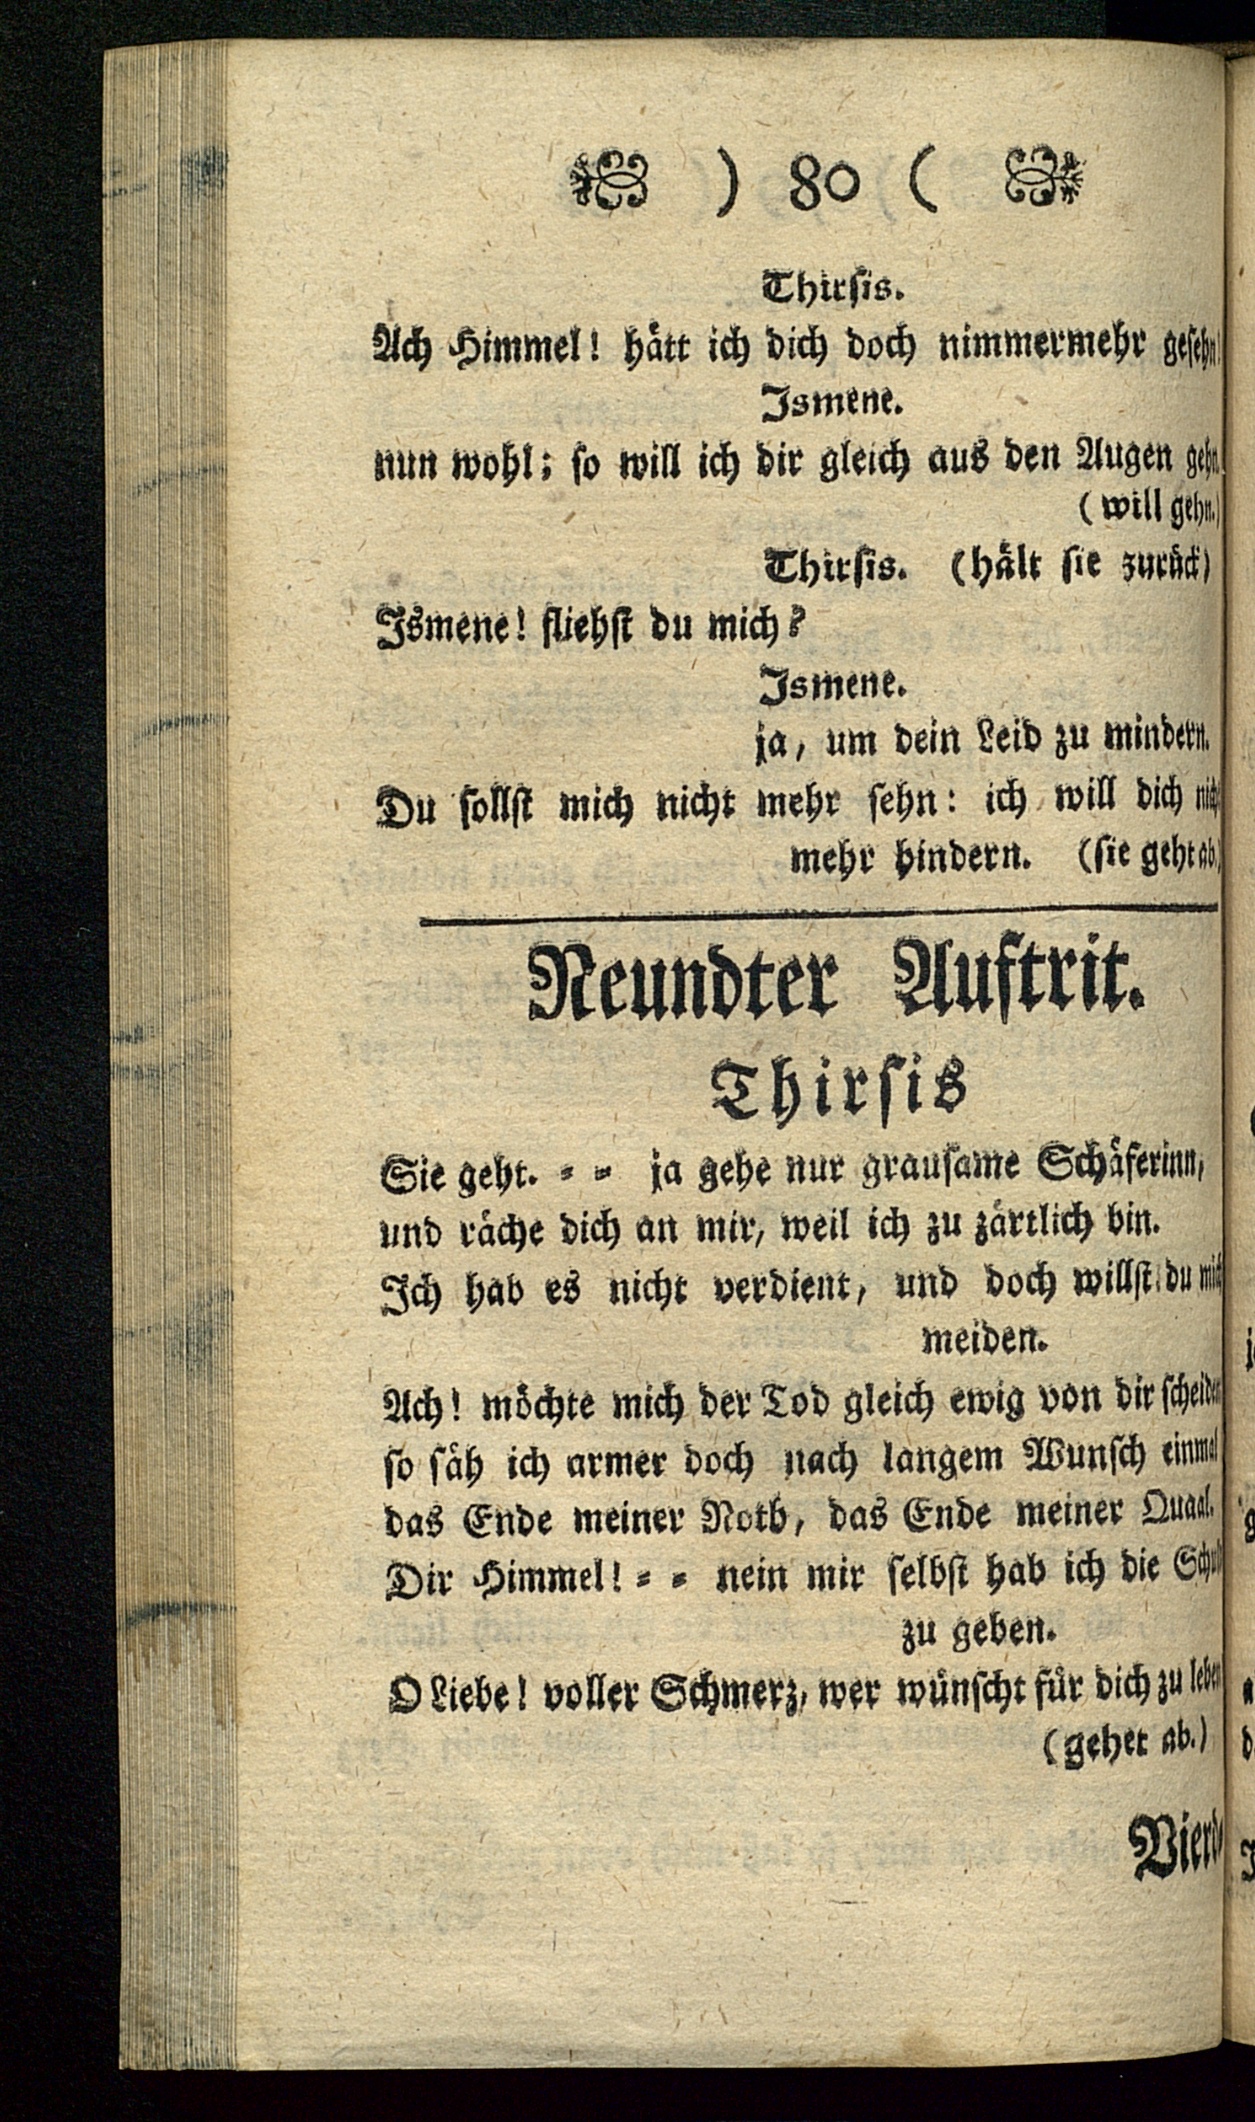 ) 80 (
Thirsis.
Ach Himmel! hätt ich dich doch nimmermehr gesehn!
Ismene.
nun wohl; so will ich dir gleich aus den Augen gehn.
(will gehn.)
Thirsis. (hält sie zurück)
Ismene! fliehst du mich?
Ismene.
ja, um dein Leid zu mindern.
Du sollst mich nicht mehr sehn: ich will dich nicht
mehr hindern. (sie geht ab.)
Neundter Auftrit.
Thirsis
Sie geht. = = ja gehe nur grausame Schäferinn,
und räche dich an mir, weil ich zu zärtlich bin.
Ich hab es nicht verdient, und doch willst du mich
meiden.
Ach! möchte mich der Tod gleich ewig von dir scheiden
so säh ich armer doch nach langem Wunsch einmal
das Ende meiner Noth, das Ende meiner Quaal.
Dir Himmel! = = nein mir selbst hab ich die Schuld
zu geben.
O Liebe! voller Schmerz, wer wünscht für dich zu leben
(gehet ab.)